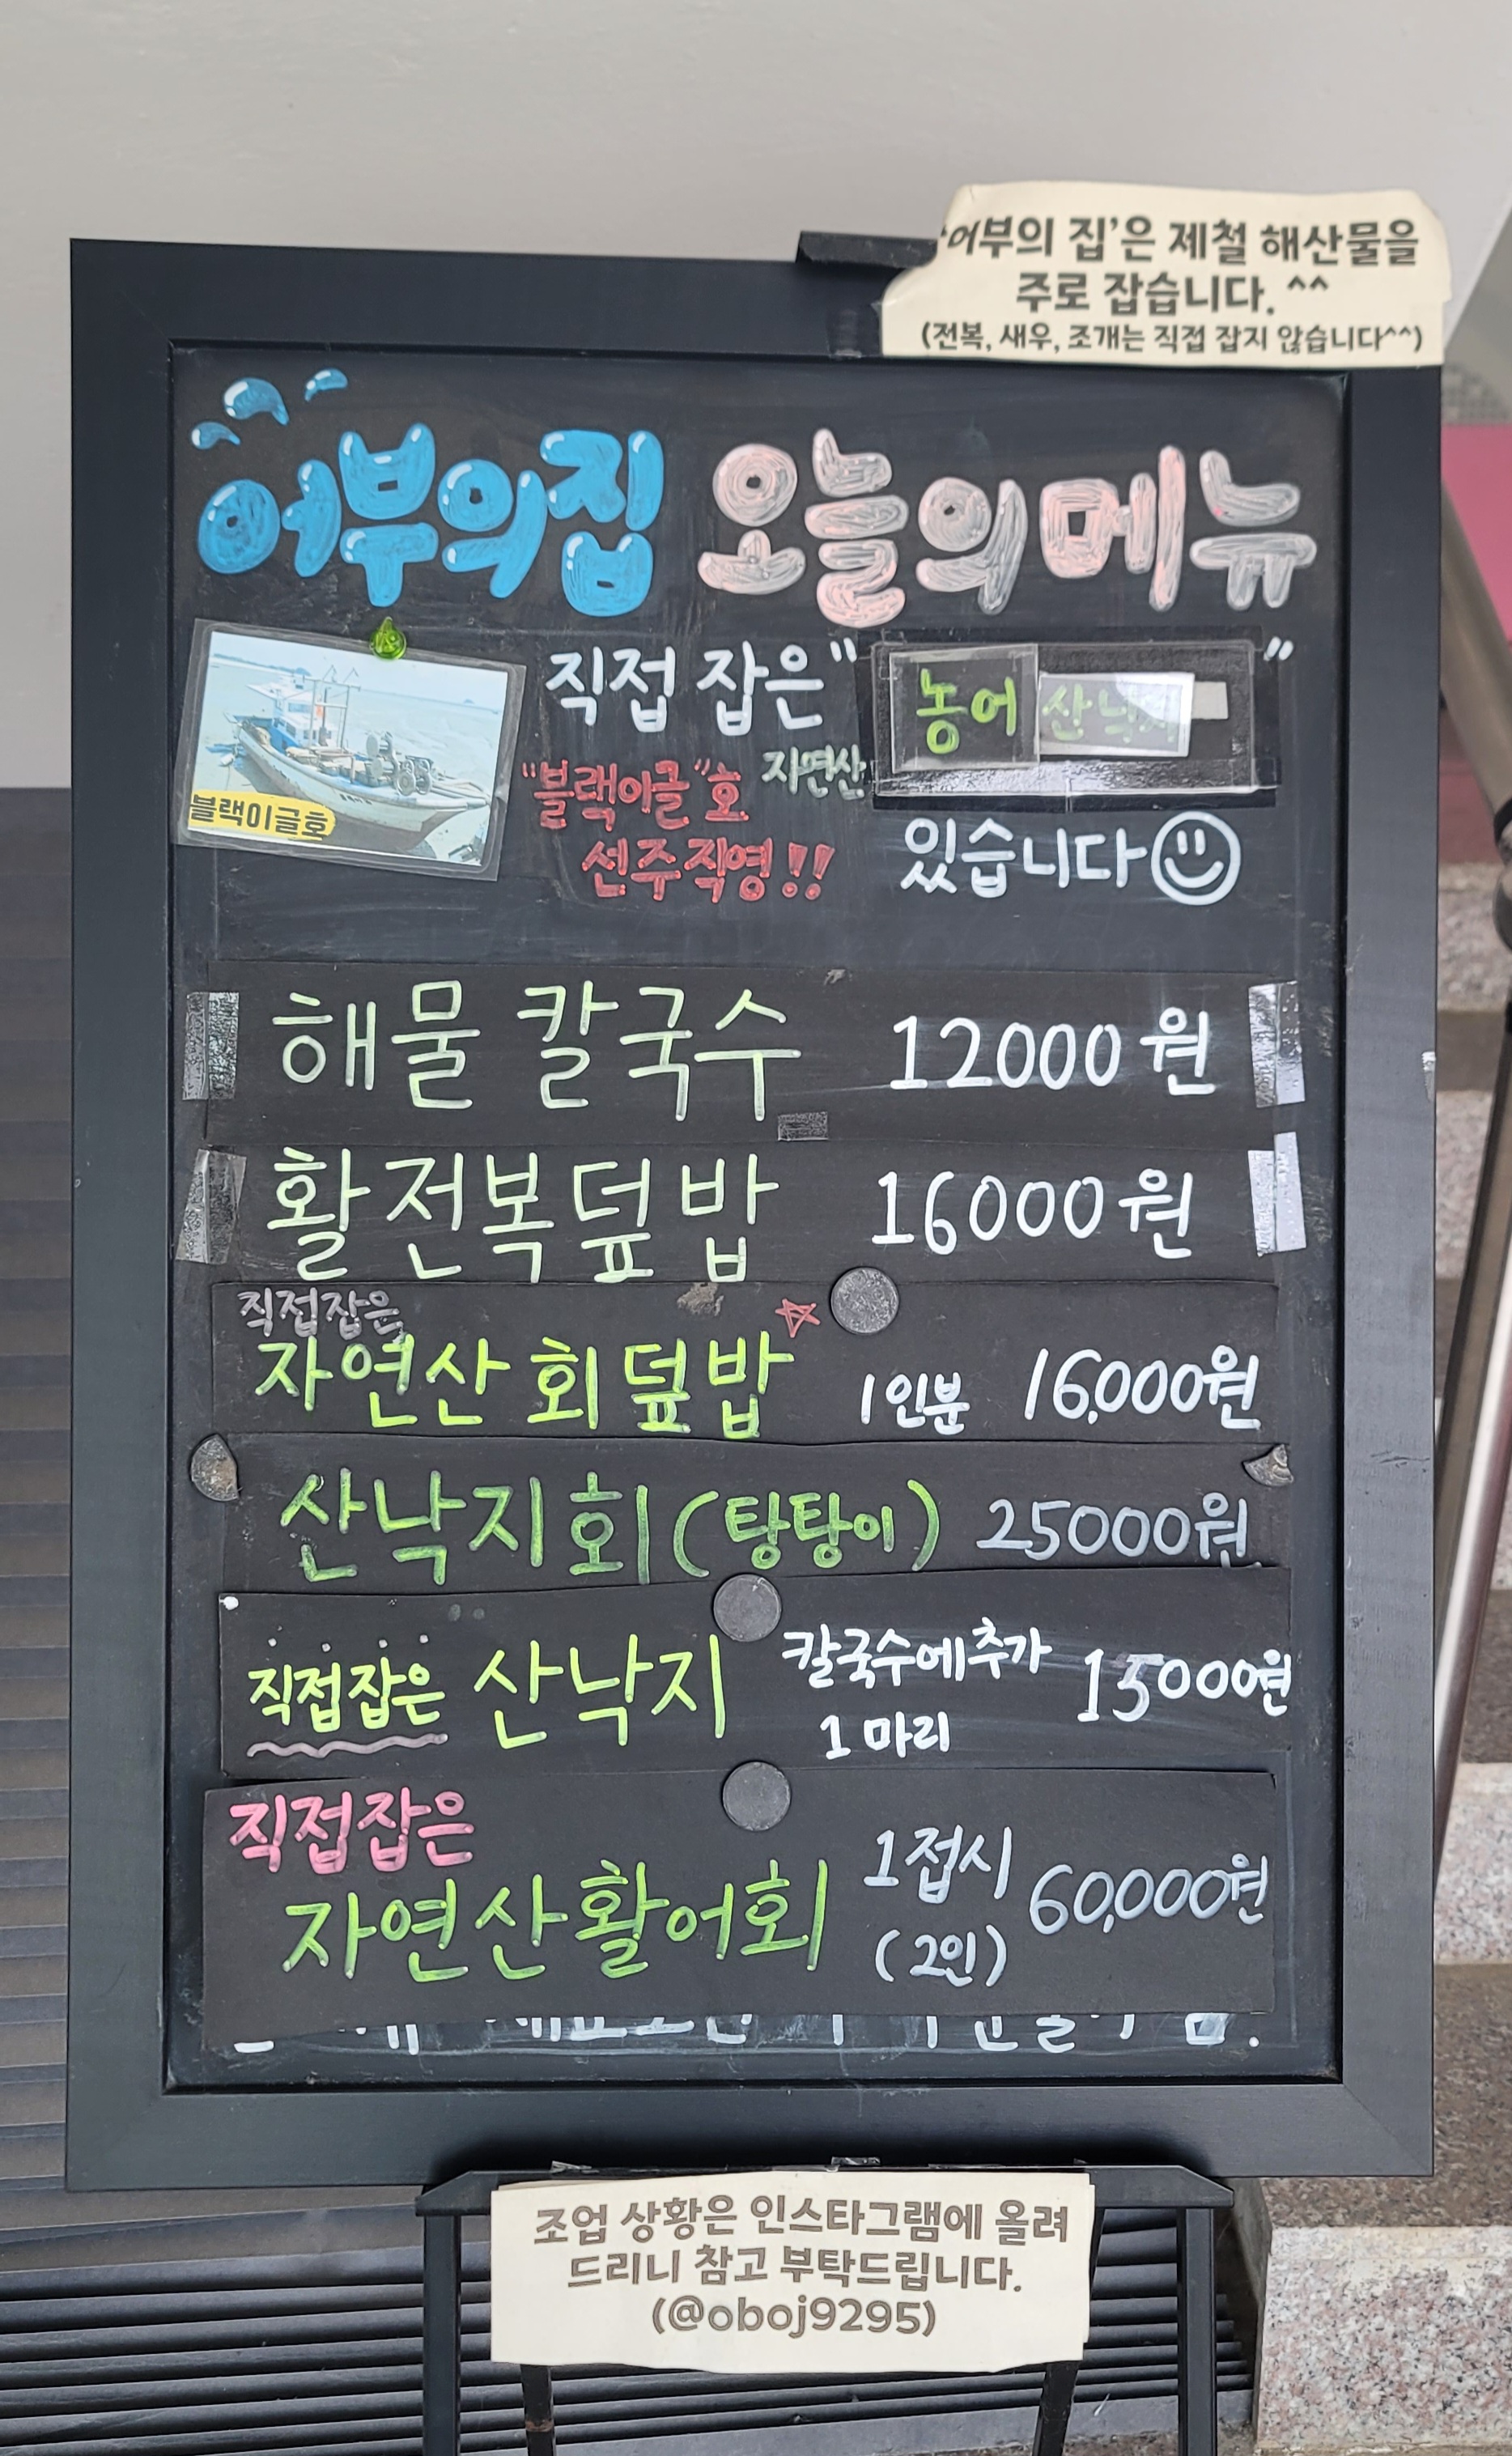 '어부의 집'은 제철 해산물을
주로 잡습니다. ^^
(전복, 새우, 조개는 직접 잡지 않습니다^^)
어부의집 오늘의메뉴
블랙이글호
직접 잡은 " 농어 산낙지 "
"블랙이글"호 자연산
선주직영!!
있습니다
해물 칼국수 12000원
활전복덮밥 16000원
직접잡은
자연산 회덮밥 1인분 16,000원
산낙지회(탕탕이) 25000원
직접잡은 산낙지 칼국수에추가 15000원
1마리
직접잡은
자연산활어회 1접시 60,000원
(2인)
조업 상황은 인스타그램에 올려
드리니 참고 부탁드립니다.
(@oboj9295)